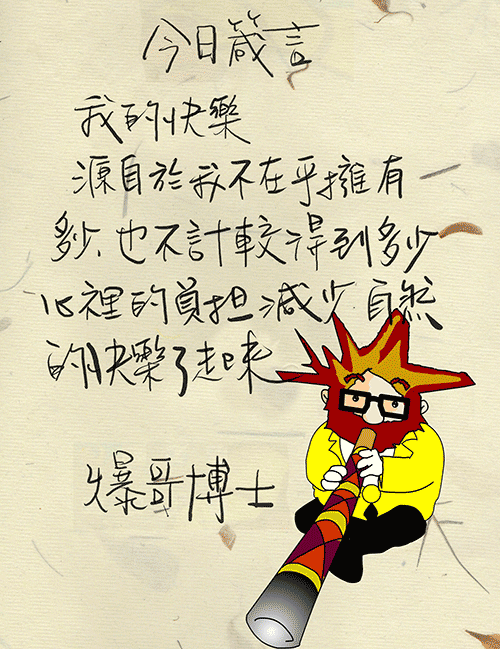 今日箴言
我的快樂
源自於我不在乎擁有
多少,也不計較得到多少
心裡的負担減少,自然
的快樂了起來
爆哥博士